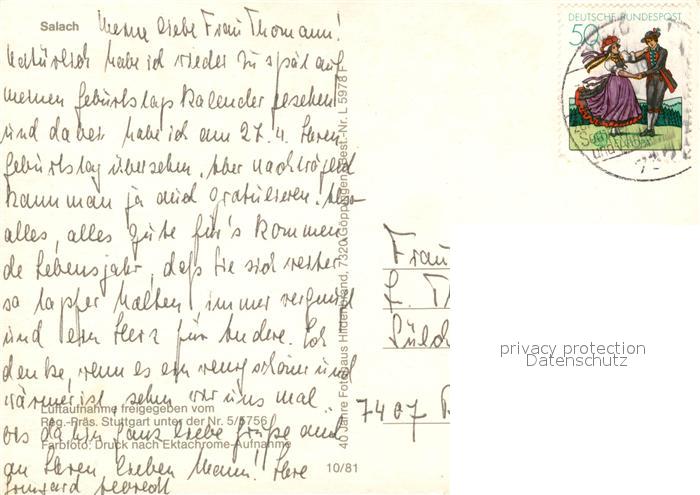 Salach
Meine liebe Frau Thomann!
Natürlich habe ich wieder zu spät auf
meinen Geburtstagskalender gesehen
und dabei habe ich am 27.4. Ihren
Geburtstag übersehen. Aber nachträglich
kann man ja auch gratulieren. Also
alles, alles Gute für's kommen
de Lebensjahr, daß Sie sich weiter
so tapfer halten, immer vergnügt
und ein Herz für Andere. Ich
denke, wenn es ein wenig schöner und
wärmer ist sehn wir uns mal
bis dahin ganz liebe Grüße auch
an Ihren lieben Mann! Ihre
Irmgard
Luftaufnahme freigegeben vom
Reg.-Präs. Stuttgart unter der Nr. 5/5756
Farbfoto: Druck nach Ektachrome-Aufnahme
10/81
40 Jahre Fotohaus Hildenbrand, 7320 Göppingen, Best.-Nr. L 5978 F
DEUTSCHE BUNDESPOST
50
Frau
L. T
Süld
7407
privacy protection
Datenschutz